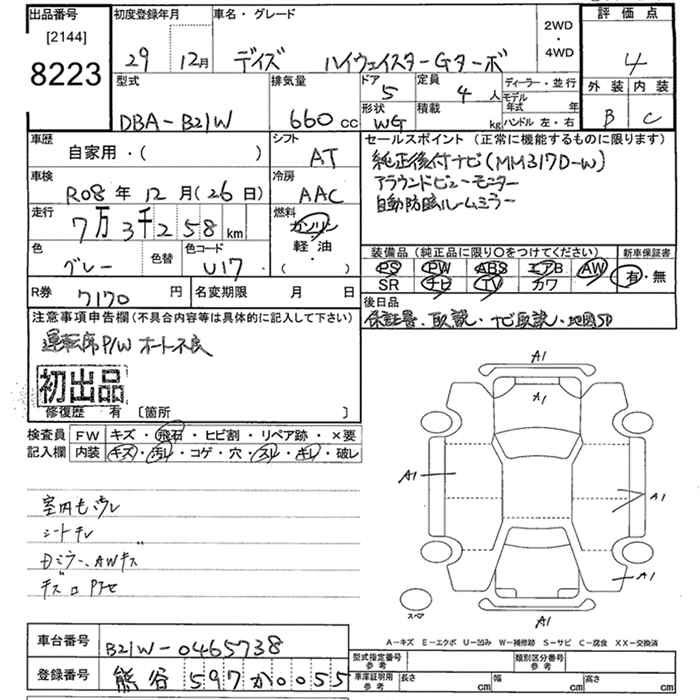 出品番号
[2144]
8223
初度登録年月
29 12月
車名・グレード
デイズ ハイウェイスターGターボ
2WD
・
4WD
評価点
4
外装 内装
B C
型式
DBA-B21W
排気量
660cc
ドア
5
定員
4人
形状
WG
積載
kg
ディーラー・並行
モデル年式 年
ハンドル 左・右
車歴
自家用・( )
シフト
AT
セールスポイント (正常に機能するものに限ります)
純正後付ナビ(MM317D-W)
アラウンドビューモニター
自動防眩ルームミラー
車検
R08年12月(26日)
冷房
AAC
走行
7万3千258km
燃料
ガソリン
軽油
・( )
色
グレー
色替
色コード
U17
装備品(純正品に限り〇をつけてください)
PS PW ABS エアB AW
SR ナビ TV カワ
新車保証書
有・無
R券
7170円
名変期限 月 日
後日品
保証書、取説、ナビ取説、地図SD
注意事項申告欄(不具合内容等は具体的に記入して下さい)
運転席P/Wオート不良
初出品
修復歴 有 [箇所 ]
検査員記入欄
FW キズ・飛石・ヒビ割・リペア跡・×要
内装 キズ・汚レ・コゲ・穴・スレ・キレ・破レ
室内モ汚レ
シートキレ
Dミラー、AWキズ
A1
A1
A1
A1
A1
A1
スペア
A-キズ E-エクボ U-凹み W-補修跡 S-サビ C-腐食 XX-交換済
車台番号
B21W-0465738
登録番号
熊谷 597か0055
型式指定番号
参考
類別区分番号
参考
車庫証明用
参考
長さ cm
幅 cm
高さ cm